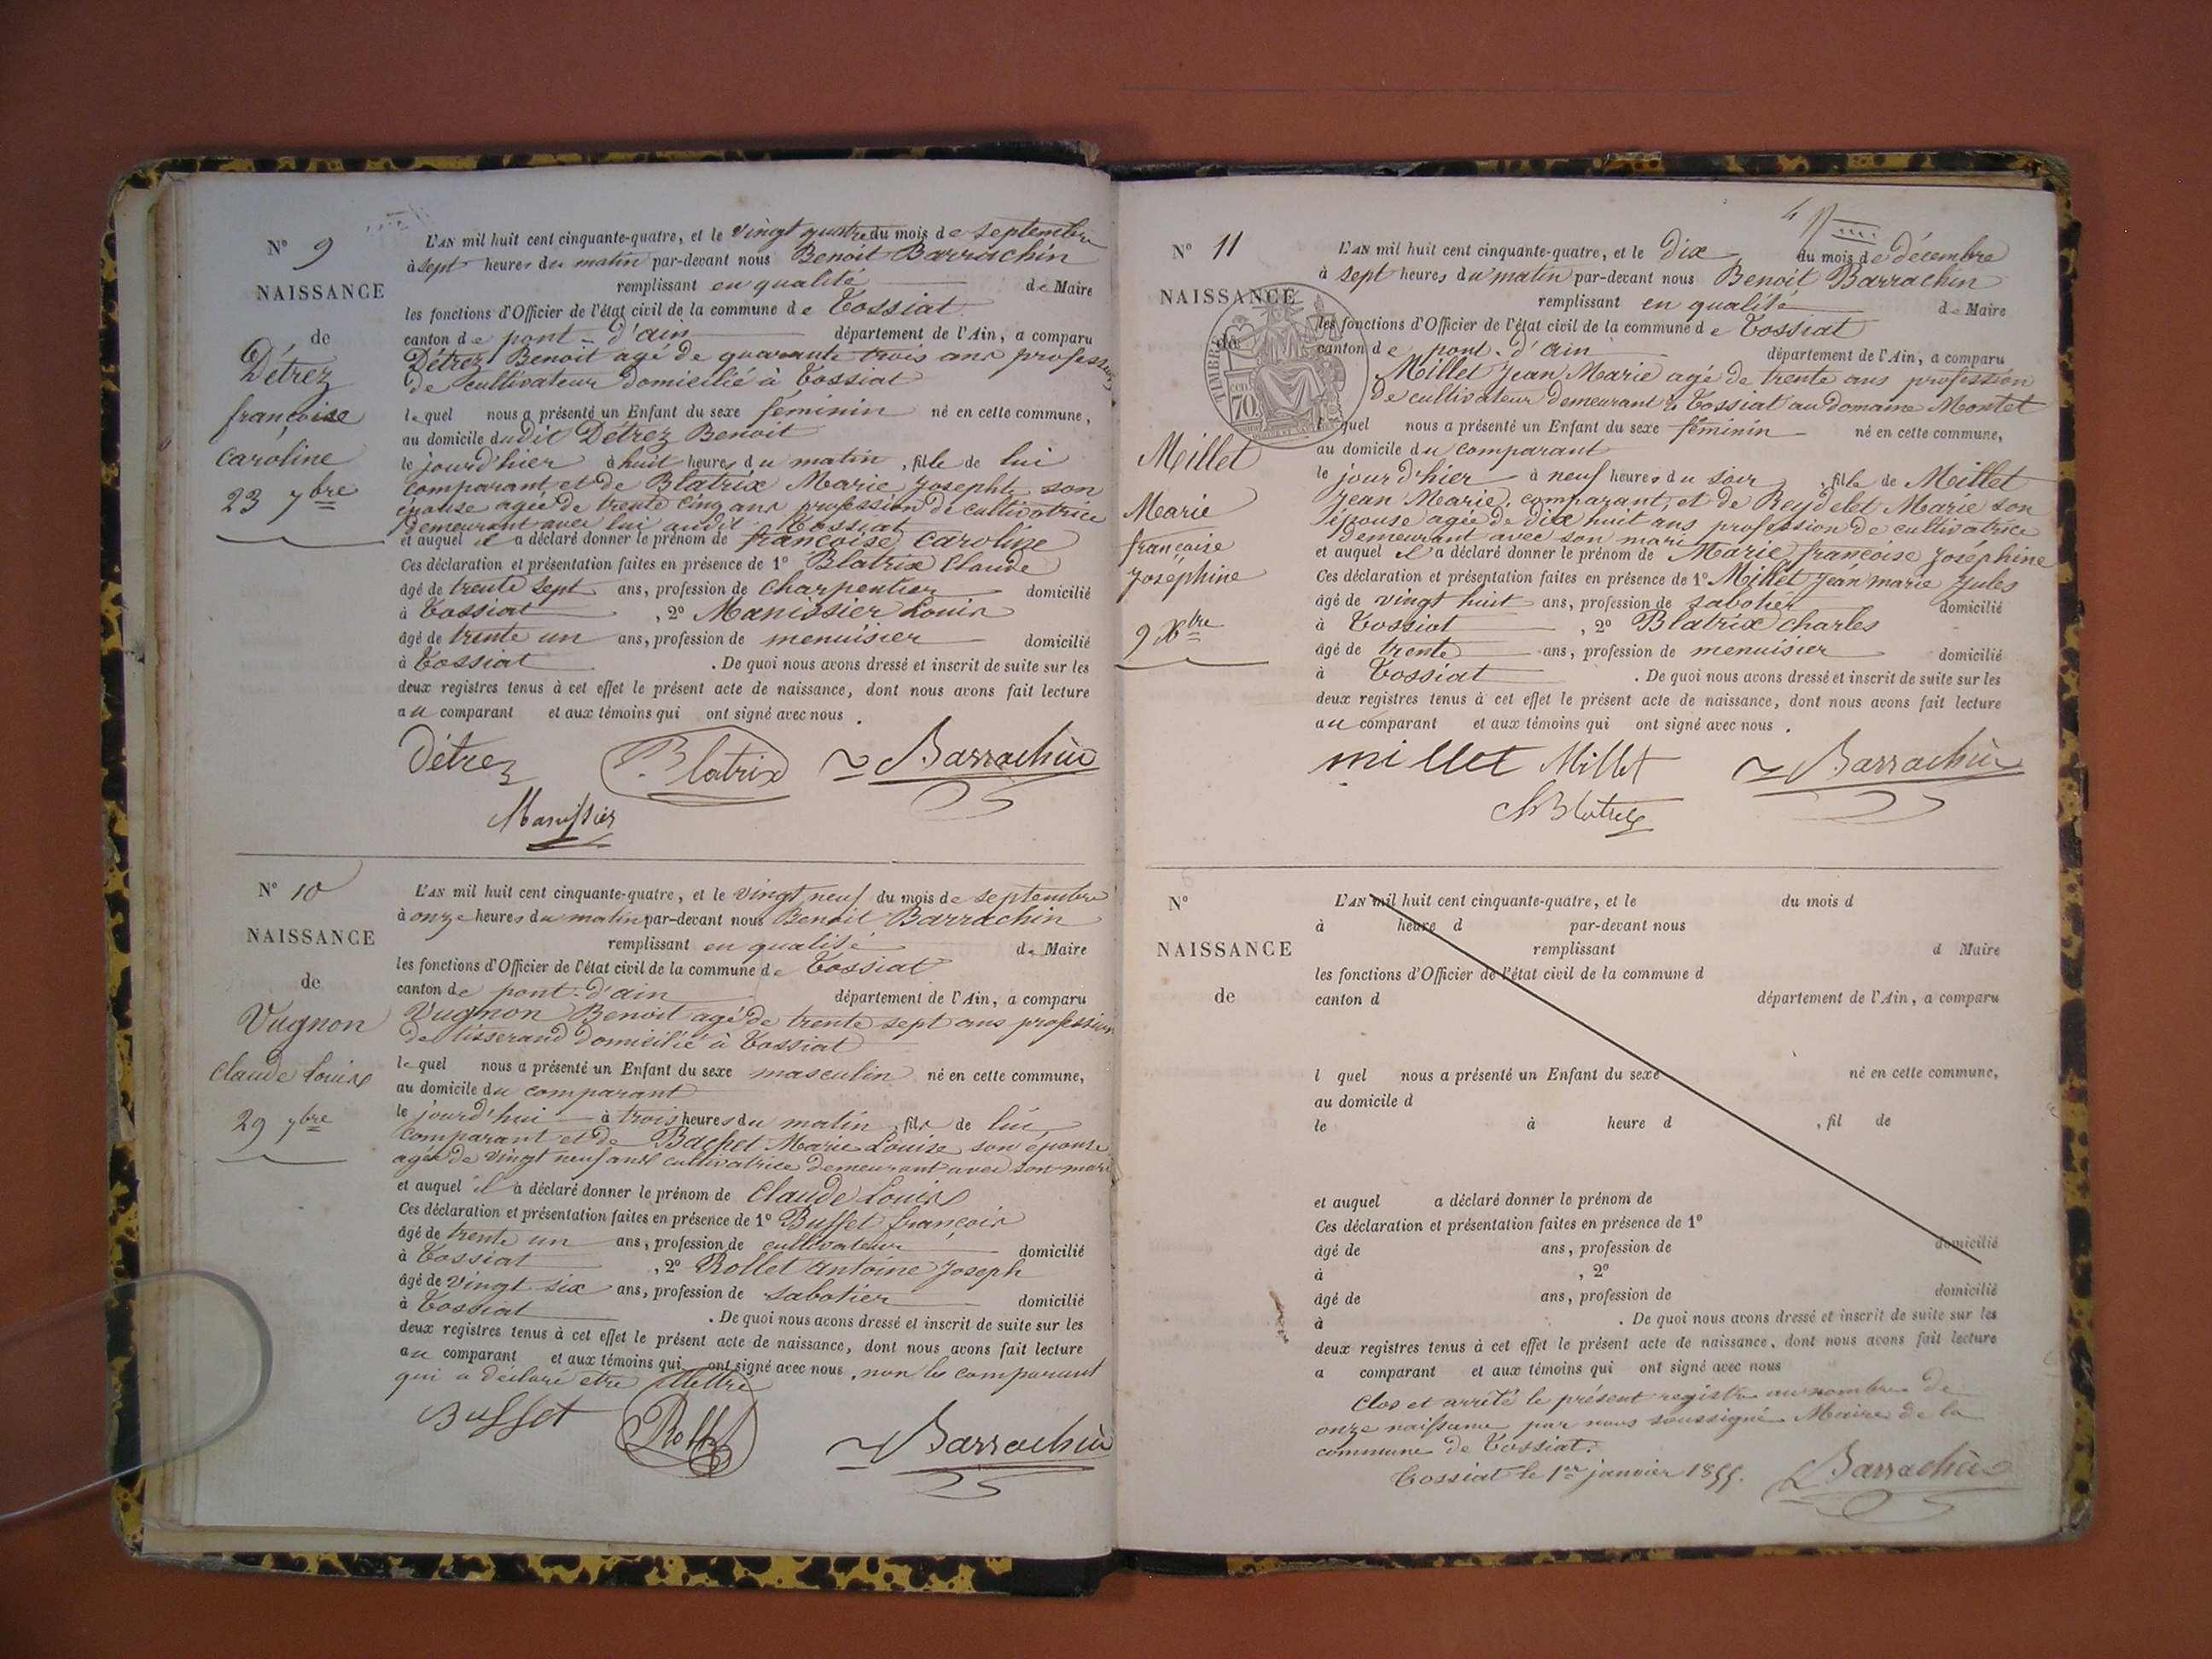 N° 9
NAISSANCE
de
Détrez
françoise
caroline
23 7bre
L'AN mil huit cent cinquante-quatre, et le vingt quatre du mois de septembre
à sept heures du matin par-devant nous Benoit Barrachin
remplissant en qualité de Maire
les fonctions d'Officier de l'état civil de la commune de Tossiat
canton de pont-d'ain département de l'Ain, a comparu
Détrez Benoit agé de quarante trois ans profession
de cultivateur domicilié à Tossiat
lequel nous a présenté un Enfant du sexe féminin né en cette commune,
au domicile dudit Détrez Benoit
le jourd'hier à huit heures du matin, fille de lui
comparant et de Blatrix Marie Josephte son
épouse agée de trente cinq ans profession de cultivatrice
demeurant avec lui audit Tossiat
et auquel il a déclaré donner le prénom de françoise caroline
Ces déclaration et présentation faites en présence de 1° Blatrix Claude
âgé de trente sept ans, profession de charpentier domicilié
à Tossiat, 2° Manissier Louis
âgé de trente un ans, profession de menuisier domicilié
à Tossiat. De quoi nous avons dressé et inscrit de suite sur les
deux registres tenus à cet effet le présent acte de naissance, dont nous avons fait lecture
au comparant et aux témoins qui ont signé avec nous.
Détrez Blatrix Barrachin
Manissier
N° 10
NAISSANCE
de
Vugnon
Claude Louis
29 7bre
L'AN mil huit cent cinquante-quatre, et le vingt neuf du mois de septembre
à onze heures du matin par-devant nous Benoit Barrachin
remplissant en qualité de Maire
les fonctions d'Officier de l'état civil de la commune de Tossiat
canton de pont-d'ain département de l'Ain, a comparu
Vugnon Benoit agé de trente sept ans profession
de tisserand domicilié à Tossiat
lequel nous a présenté un Enfant du sexe masculin né en cette commune,
au domicile du comparant
le jourd'hui à trois heures du matin, fils de lui
comparant et de Bachet Marie Louise son épouse
agée de vingt neuf ans cultivatrice demeurant avec son mari
et auquel il a déclaré donner le prénom de Claude Louis
Ces déclaration et présentation faites en présence de 1° Buffet françois
âgé de trente un ans, profession de cultivateur domicilié
à Tossiat, 2° Rollet Antoine Joseph
âgé de vingt six ans, profession de sabotier domicilié
à Tossiat. De quoi nous avons dressé et inscrit de suite sur les
deux registres tenus à cet effet le présent acte de naissance, dont nous avons fait lecture
au comparant et aux témoins qui ont signé avec nous, non le comparant
qui a déclaré etre illettré
Buffet Rollet Barrachin
N° 11
NAISSANCE
de
Millet
Marie
françoise
Joséphine
9 Xbre
TIMBRE
70 cent
L'AN mil huit cent cinquante-quatre, et le dix du mois de décembre
à sept heures du matin par-devant nous Benoit Barrachin
remplissant en qualité de Maire
les fonctions d'Officier de l'état civil de la commune de Tossiat
canton de pont-d'ain département de l'Ain, a comparu
Millet Jean Marie agé de trente ans profession
de cultivateur demeurant à Tossiat au domaine Montet
lequel nous a présenté un Enfant du sexe féminin né en cette commune,
au domicile du comparant
le jourd'hier à neuf heures du soir, fille de Millet
Jean Marie, comparant, et de Reydelet Marie son
épouse agée de dix huit ans profession de cultivatrice
demeurant avec son mari
et auquel il a déclaré donner le prénom de Marie françoise Joséphine
Ces déclaration et présentation faites en présence de 1° Millet Jean marie Jules
âgé de vingt huit ans, profession de sabotier domicilié
à Tossiat, 2° Blatrix charles
âgé de trente ans, profession de menuisier domicilié
à Tossiat. De quoi nous avons dressé et inscrit de suite sur les
deux registres tenus à cet effet le présent acte de naissance, dont nous avons fait lecture
au comparant et aux témoins qui ont signé avec nous.
millet Millet Barrachin
Ch Blatrix
N°
NAISSANCE
de
L'AN mil huit cent cinquante-quatre, et le du mois d
à heure d par-devant nous
remplissant d Maire
les fonctions d'Officier de l'état civil de la commune d
canton d département de l'Ain, a comparu
l quel nous a présenté un Enfant du sexe né en cette commune,
au domicile d
le à heure d , fil de
et auquel a déclaré donner le prénom de
Ces déclaration et présentation faites en présence de 1°
âgé de ans, profession de domicilié
à , 2°
âgé de ans, profession de domicilié
à . De quoi nous avons dressé et inscrit de suite sur les
deux registres tenus à cet effet le présent acte de naissance, dont nous avons fait lecture
a comparant et aux témoins qui ont signé avec nous
Clos et arrêté le présent registre au nombre de
onze naissance par nous soussigné Maire de la
commune de Tossiat.
Tossiat le 1er janvier 1855. Barrachin